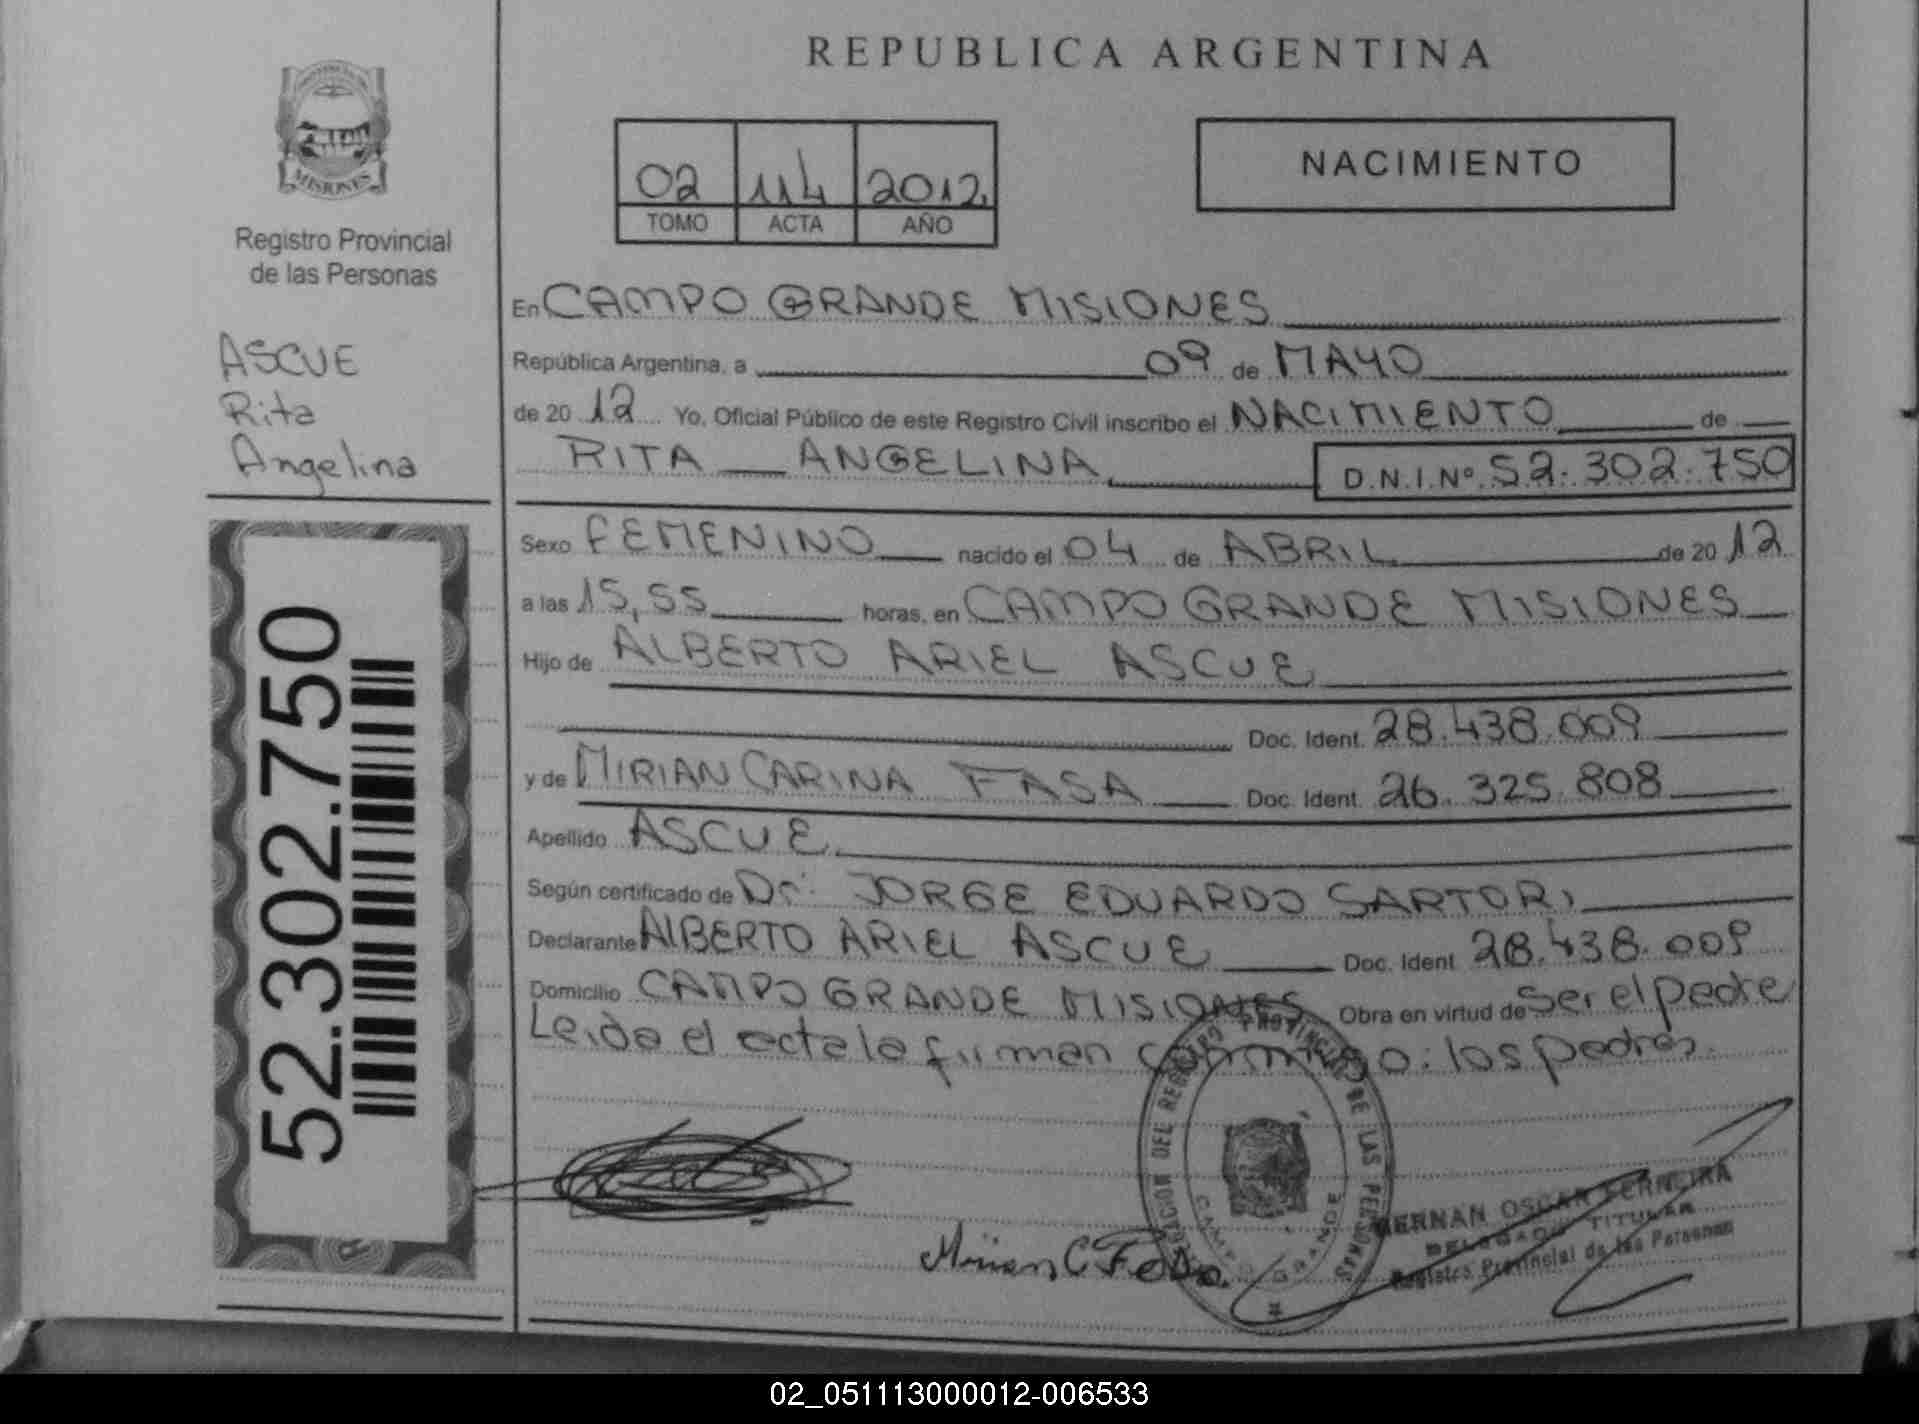 REPUBLICA ARGENTINA
PROVINCIA DE
MISIONES
Registro Provincial
de las Personas
02 114 2012
TOMO ACTA AÑO
NACIMIENTO
ASCUE
Rita
Angelina
En CAMPO GRANDE MISIONES
República Argentina, a 09 de MAYO
de 20 12 Yo, Oficial Público de este Registro Civil inscribo el NACIMIENTO de
RITA ANGELINA D.N.I.Nº 52.302.750
Sexo FEMENINO nacido el 04 de ABRIL de 20 12
a las 15,55 horas, en CAMPO GRANDE MISIONES
Hijo de ALBERTO ARIEL ASCUE
Doc. Ident. 28.438.009
y de MIRIAN CARINA FASA Doc. Ident. 26.325.808
Apellido ASCUE
Según certificado de Dr. JORGE EDUARDO SARTORI
Declarante ALBERTO ARIEL ASCUE Doc. Ident. 28.438.009
Domicilio CAMPO GRANDE MISIONES Obra en virtud de Ser el padre
Leida el acta la firman conmigo: los padres.
52.302.750
Mirian C Fasa
PROVINCIAL DE LAS PERSONAS
CAMPO GRANDE
HERNAN OSCAR FERREIRA
DELEGADO TITULAR
Registro Provincial de las Personas
02_051113000012-006533